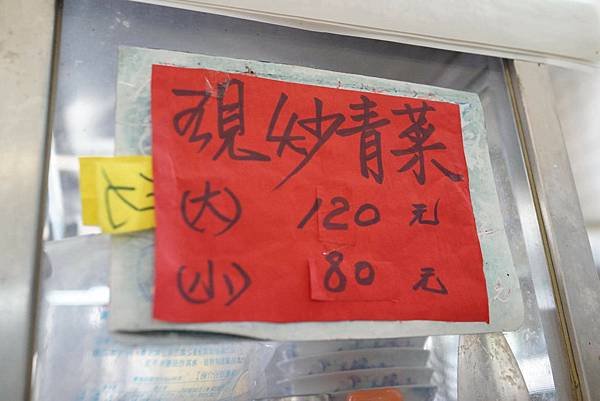 現炒青菜
(大) 120元
(小) 80元